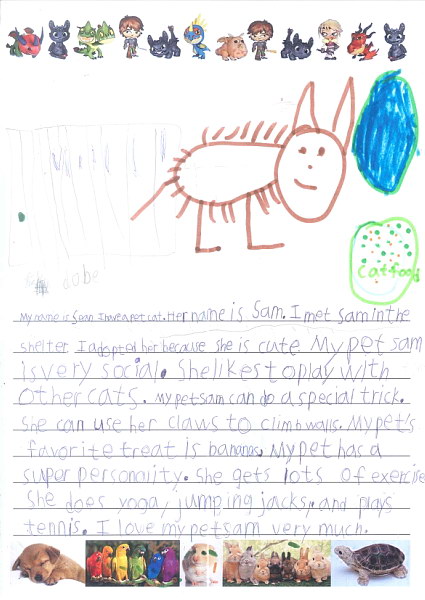 Cat food
dobe
My name is Sean I have a pet cat. Her name is Sam. I met sam in the
shelter I adopted her because she is cute My pet sam
is very social. She likes to play with
other cats. My pet sam can do a special trick.
She can use her claws to climb walls. My pet's
favorite treat is bananas, My pet has a
super personality. She gets lots of exercise
She does yoga, jumping jacks, and plays
tennis. I love my pet sam very much.